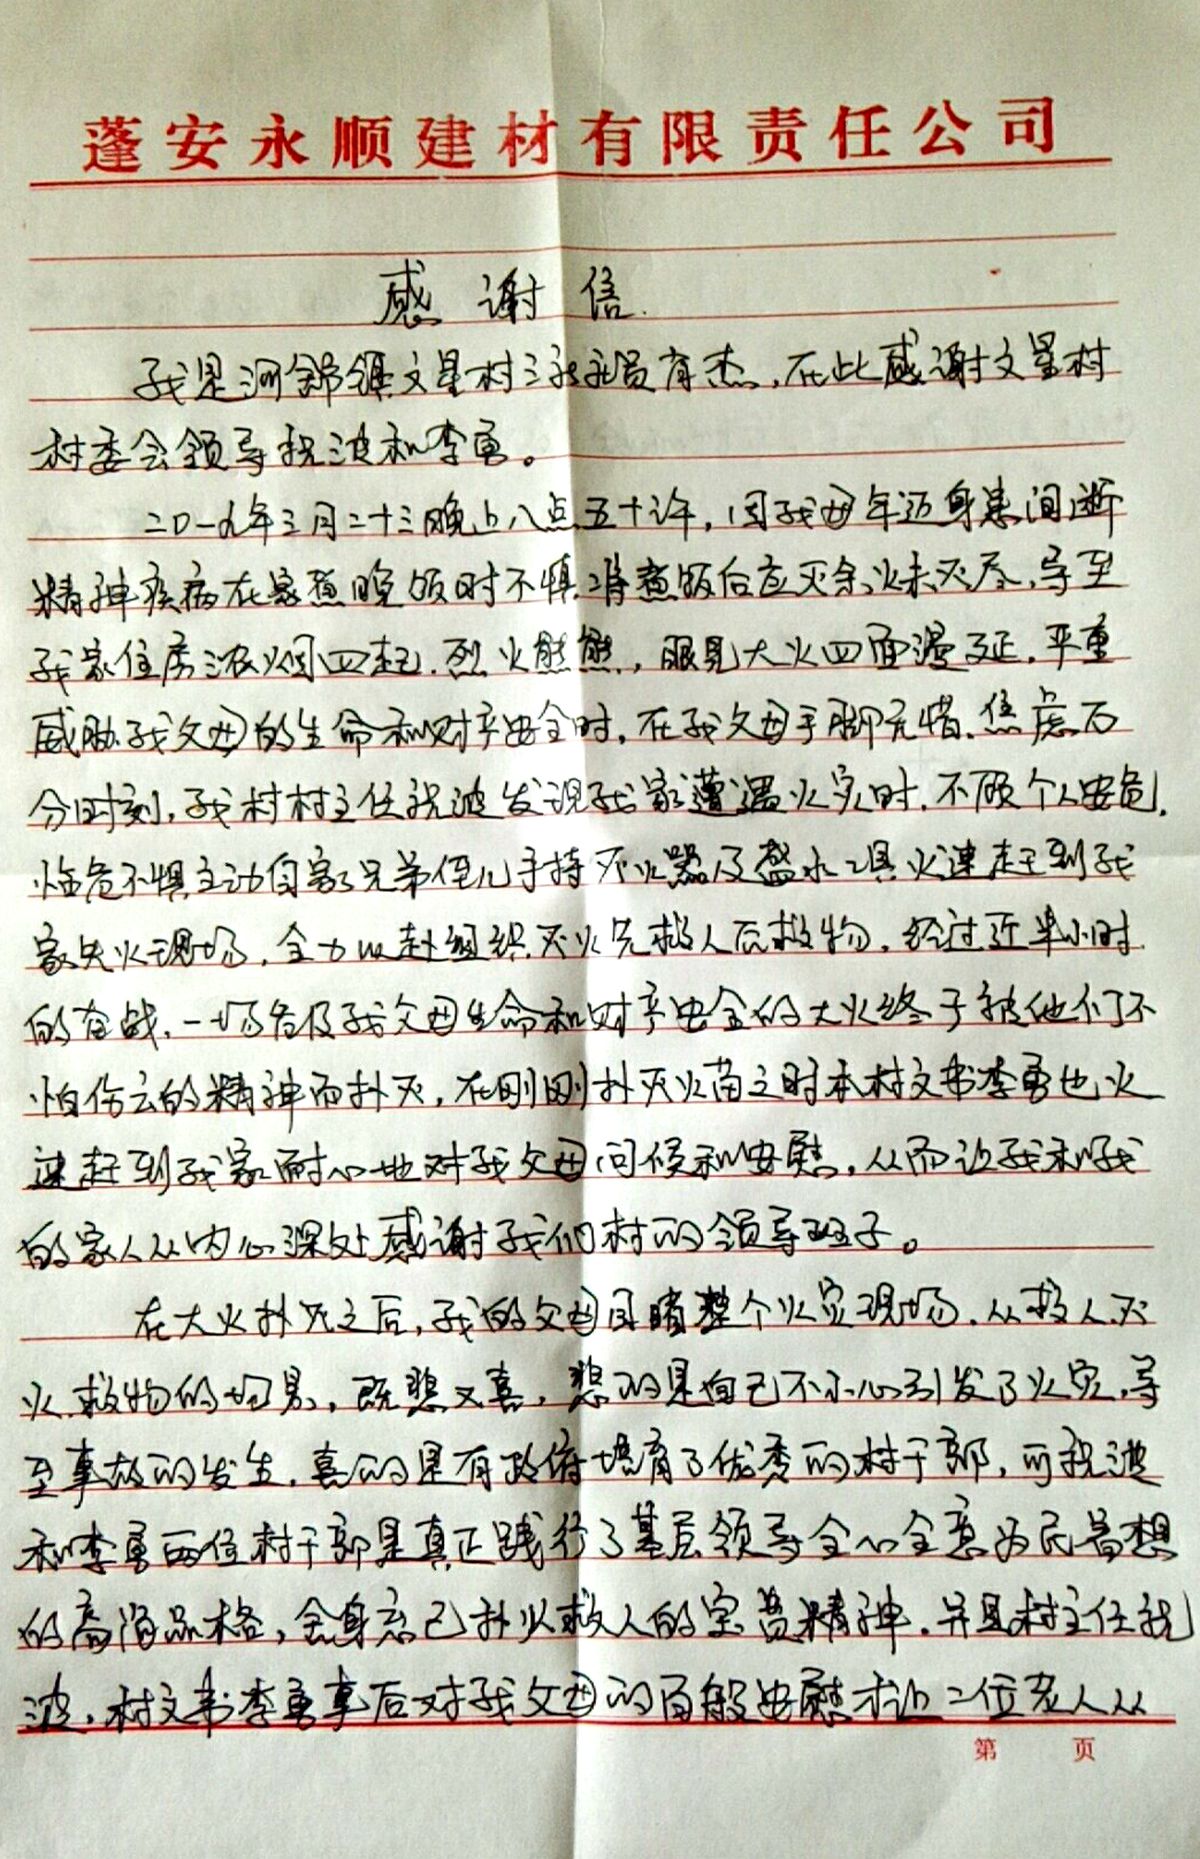 蓬安永顺建材有限责任公司
感谢信
我是河舒镇文星村三社社员育杰，在此感谢文星村
村委会领导祝波和李勇。
二0一九年三月二十三晚上八点五十许，因我母年迈身患间断
精神疾病在家煮晚饭时不慎，将煮饭后应灭余火未灭尽，导至
我家住房浓烟四起．烈火熊熊，眼见大火四面漫延．严重
威胁我父母的生命和财产安全时．在我父母手脚无惜．焦虑万
分时刻，我村村主任祝波发现我家遭遇火灾时．不顾个人安危．
临危不惧主动自家兄弟侄儿手持灭火器及盛水工具火速赶到我
家失火现场，全力以赴组织灭火先救人后救物，经过近半小时
的奋战．一场危及我父母生命和财产安全的大火终于被他们不
怕伤亡的精神而扑灭，在刚刚扑灭火苗之时本村文书李勇也火
速赶到我家耐心地对我父母问候和安慰，从而让我和我
的家人从内心深处感谢我们村的领导班子。
在大火扑灭之后，我的父母目睹整个火灾现场．从救人．灭
火．救物的场景，既悲又喜，悲的是自己不小心引发了火灾，导
至事故的发生．喜的是有政府培育了优秀的村干部，可祝波
和李勇两位村干部是真正践行了基层领导全心全意为民着想
的高尚品格，舍身忘己扑火救人的宝贵精神．并且村主任祝
波．村文书李勇事后对我父母的百般安慰才让二位老人从
第 页